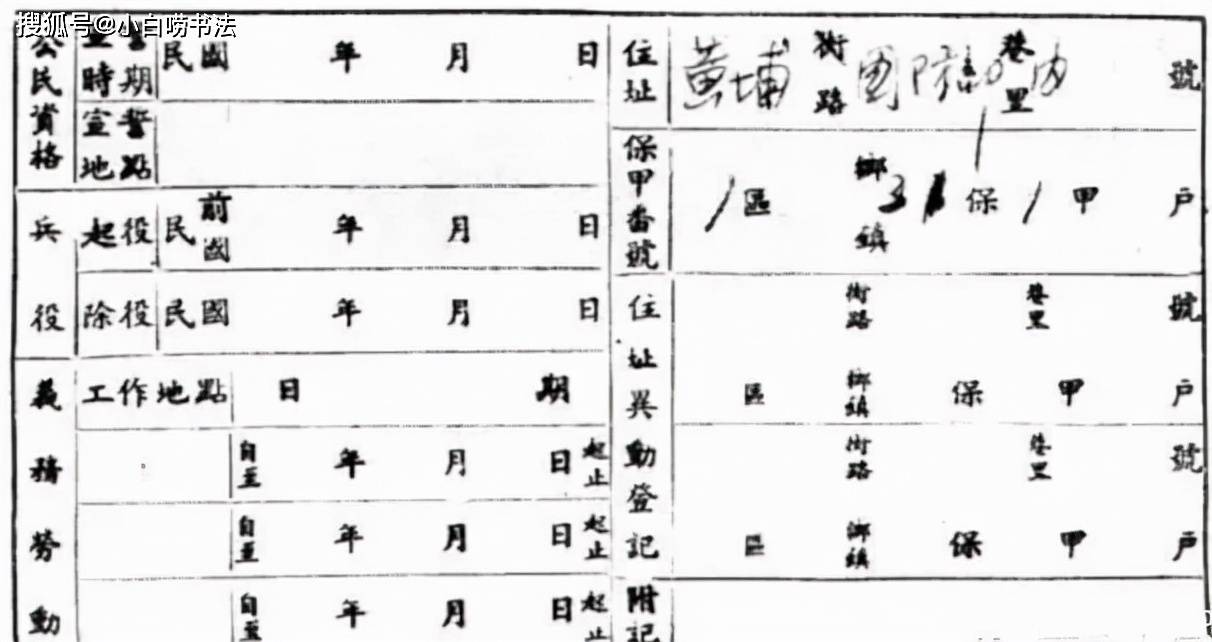 搜狐号@小白唠书法
公民資格
宣誓時期
民國 年 月 日
宣誓地點
兵役
起役
民前國 年 月 日
除役
民國 年 月 日
義務勞動
工作地點 日 期
自至 年 月 日 起止
自至 年 月 日 起止
自至 年 月 日 起止
住址
黃埔 街路 國防部 巷里 內 號
保甲番號
1 區 鄉鎮 31 保 1 甲 戶
住址異動登記
街路 巷里 號
區 鄉鎮 保 甲 戶
街路 巷里 號
區 鄉鎮 保 甲 戶
附記